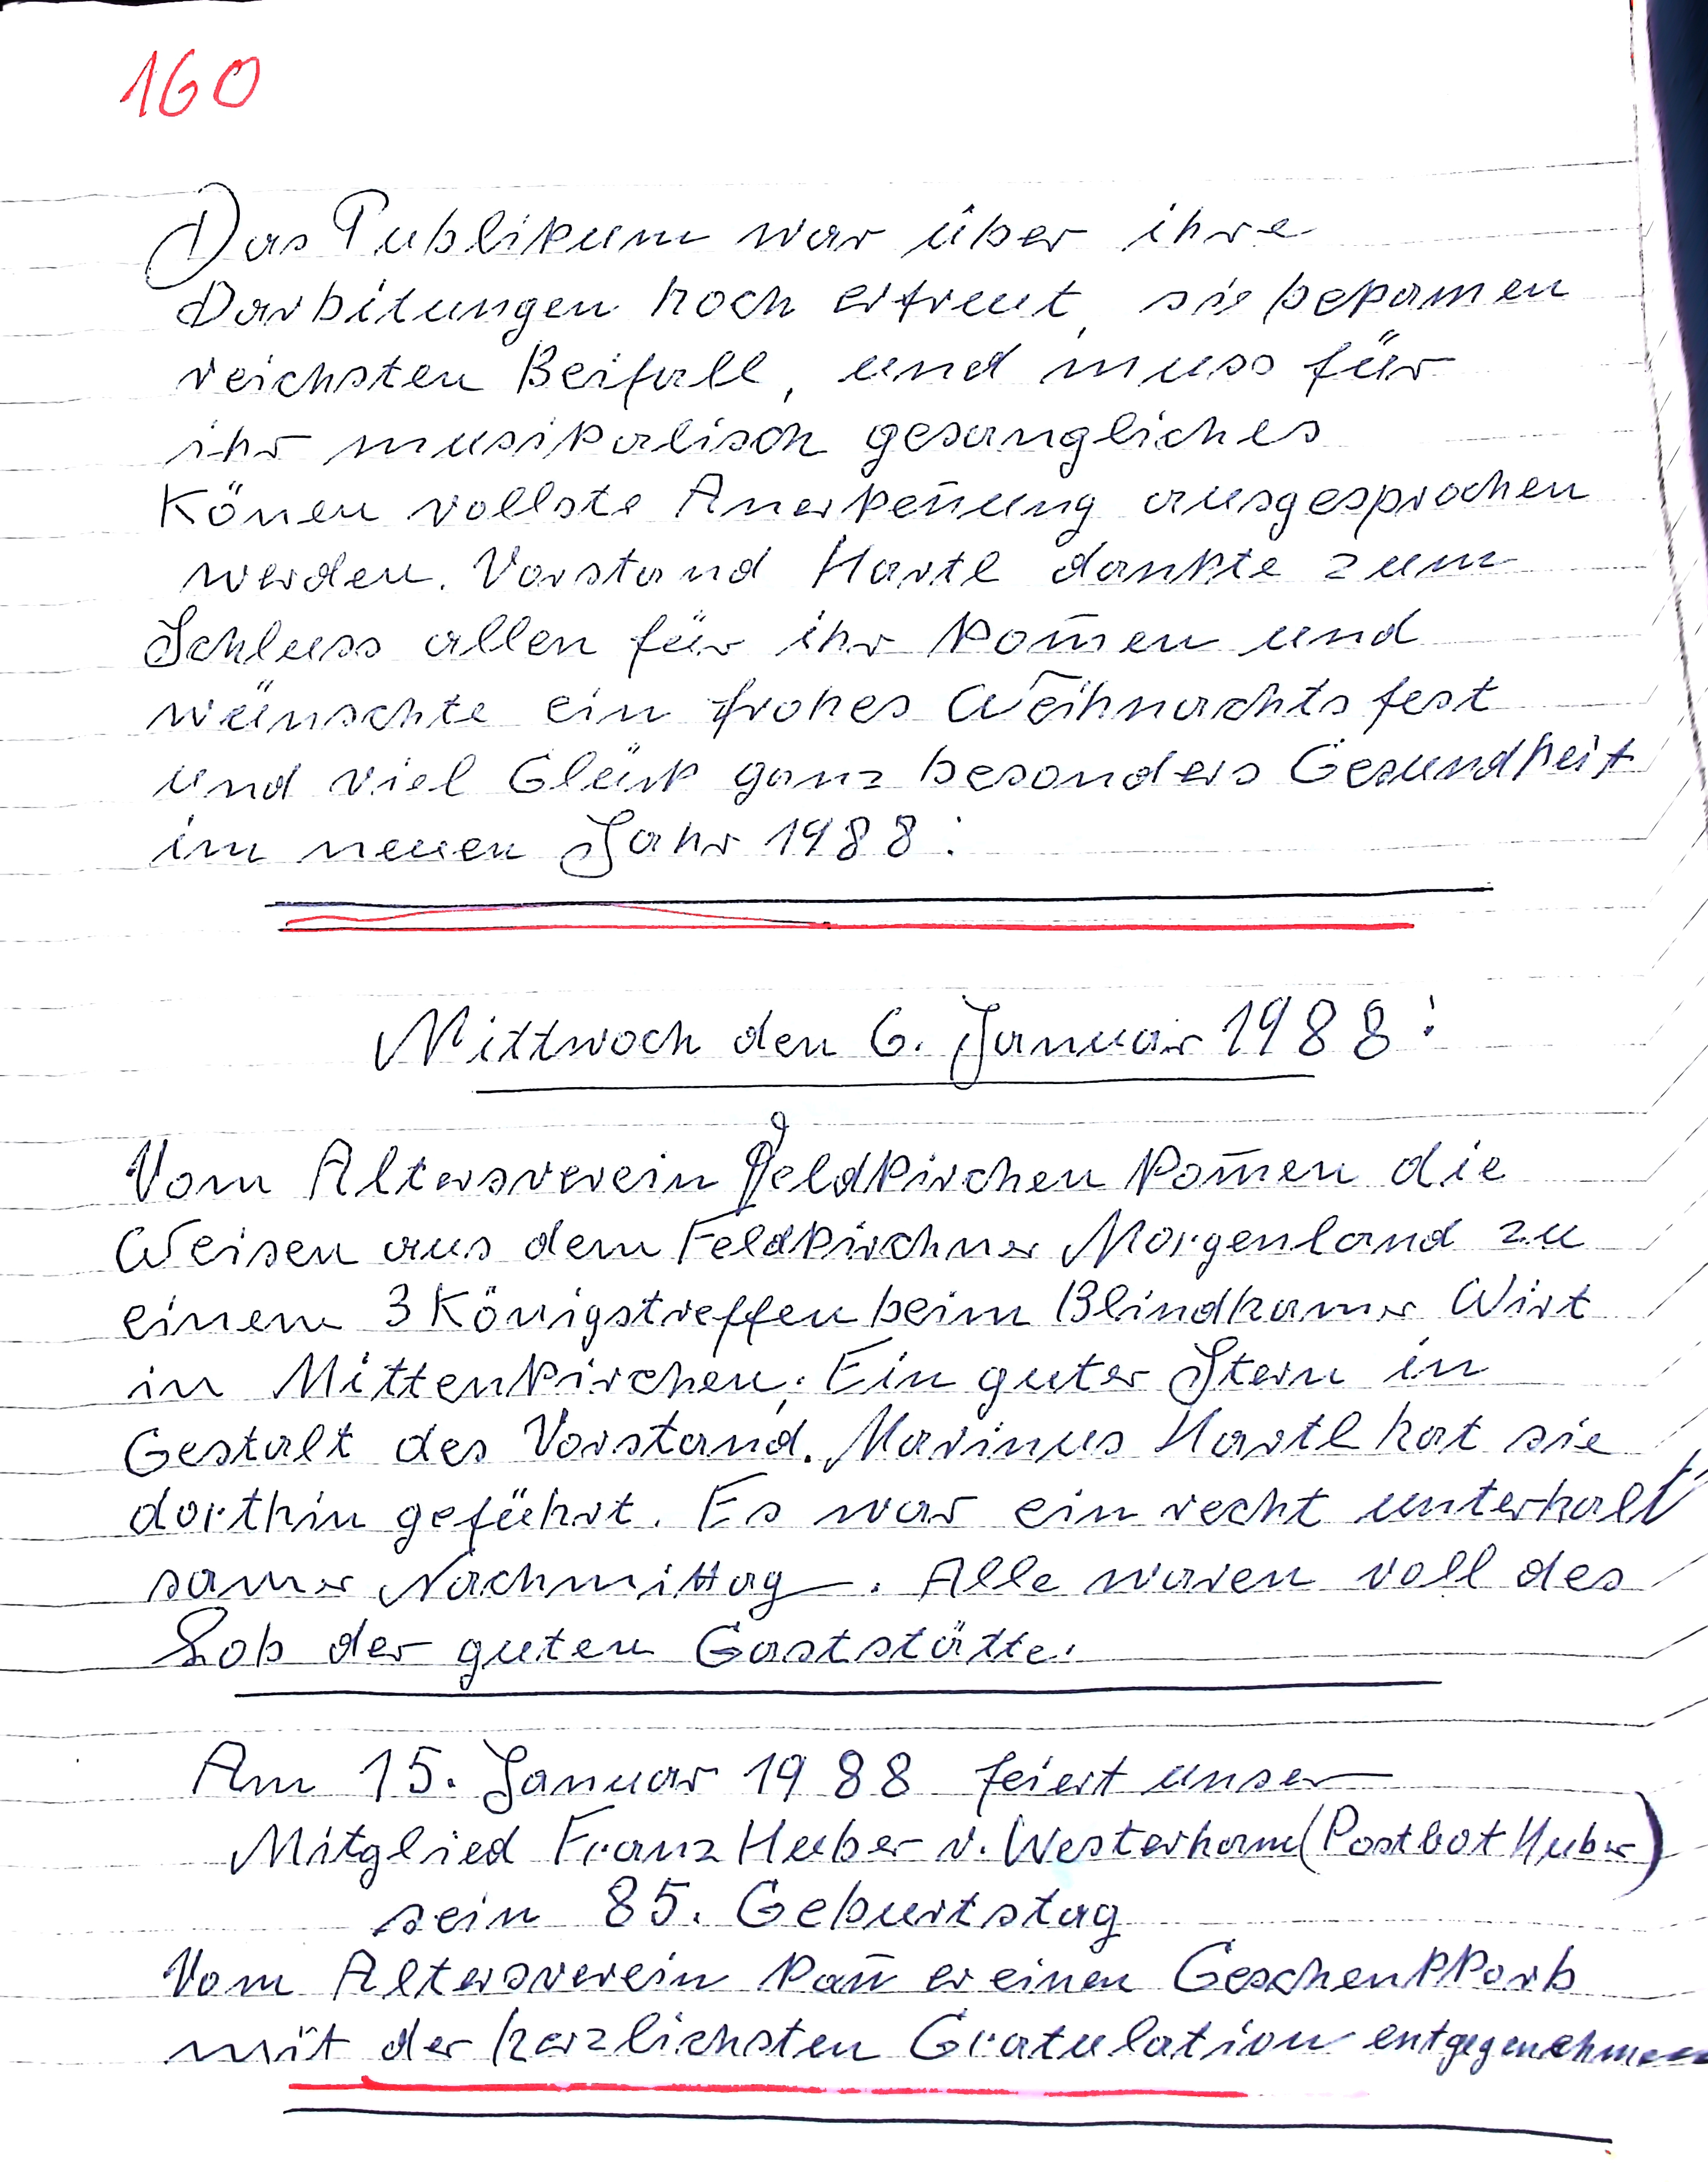 160
Das Publikum war über ihre
Darbitungen hoch erfreut, sie bekamen
reichsten Beifall, und muss für
ihr musikalisch gesangliches
Könen vollste Anerken̄ung ausgesprochen
werden. Vorstand Hartl dankte zum
Schluss allen für ihr kom̄en und
wünschte ein frohes Weihnachtsfest
und viel Glück ganz besonders Gesundheit
im neuen Jahr 1988:
Mittwoch den 6. Januar 1988:
Vom Altersverein Feldkirchen kom̄en die
Weisen aus dem Feldkirchner Morgenland zu
einem 3 Königstreffen beim Blindhamer Wirt
in Mittenkirchen. Ein guter Stern in
Gestalt des Vorstand. Marinus Hartl hat sie
dorthin geführt. Es war ein recht unterhalt
samer Nachmittag. Alle waren voll des
Lob der guten Gaststätte.
Am 15. Januar 1988 feiert unser
Mitglied Franz Huber v. Westerham (Postbot Huber)
sein 85. Geburtstag
Vom Altersverein kan̄ er einen Geschenkkorb
mit der herzlichsten Gratulation entgegennehmen